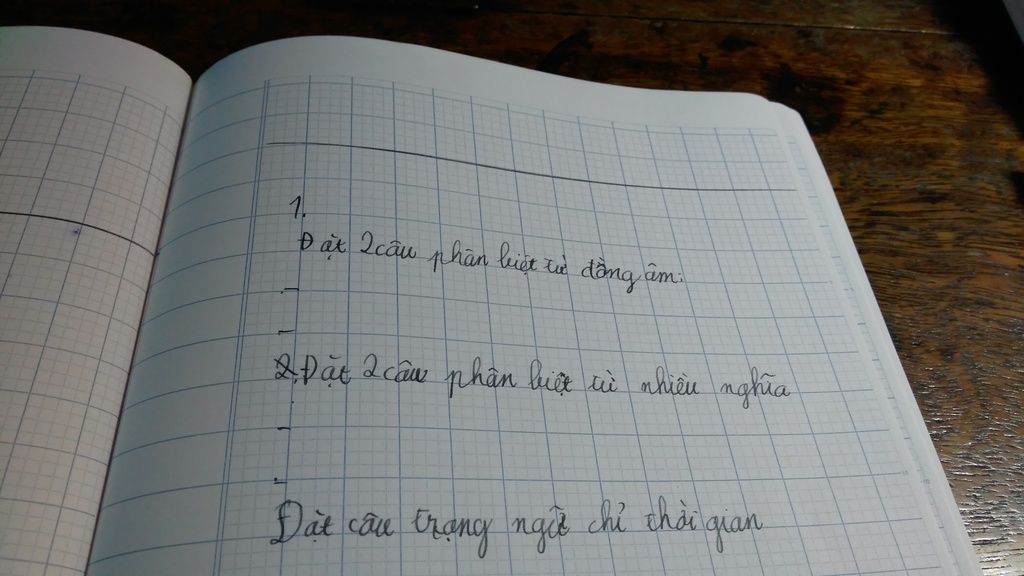 1.
Đặt 2 câu phân biệt từ đồng âm:
-
-
2. Đặt 2 câu phân biệt từ nhiều nghĩa
-
-
Đặt câu trạng ngữ chỉ thời gian